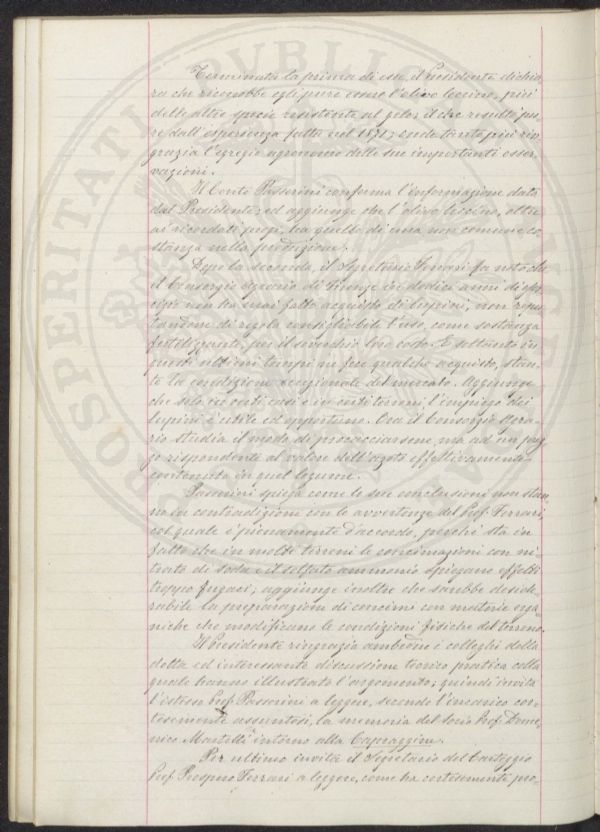 Terminata la prima di esse, il Presidente dichia
ra che riconobbe egli pure come l'olivo leccino, più
delle altre specie resistente al gelo; il che resultò pu
re dall'esperienza fatta nel 1871; onde tanto più rin
grazia l'egregio agronomo delle sue importanti osser
vazioni.
Il Conte Passerini conferma l'informazione data
dal Presidente; ed aggiunge che l'olivo leccino, oltre
ai ricordati pregi, ha quello di una non comune co
stanza nella produzione.
Dopo la seconda, il Segretario Ferrari fa noto che
il Consorzio agrario di Firenze in dodici anni di eser
cizio non ha mai fatto acquisto di lupini, non repu
tandone di regola consigliabile l'uso, come sostanza
fertilizzante, per il soverchio loro costo. E soltanto in
questi ultimi tempi ne fece qualche acquisto, stan
te la condizione eccezionale del mercato. Aggiunge
che solo in certi casi e in certi terreni l'impiego dei
lupini è utile ed opportuno. Ora il Consorzio Agra
rio studia il modo di procacciarsene, ma ad un prez
zo rispondente al valore dell'azoto effettivamente
contenuto in quel legume.
Passerini spiega come le sue conclusioni non stan
no in contradizione con le avvertenze del Prof. Ferrari,
col quale è pienamente d'accordo, perché sta in
fatto che in molti terreni le concimazioni con ni
trato di soda e il solfato ammonio spiegano effetti
troppo fugaci; aggiunge inoltre che sarebbe deside
rabile la preparazione di concimi con materie orga
niche che modificano le condizioni fisiche del terreno.
Il Presidente ringrazia ambedue i colleghi della
dotta ed interessante discussione teorico pratica colla
quale hanno illustrato l'argomento; quindi invita
l'istesso Prof. Passerini a leggere, secondo l'incarico cor
tesemente assuntosi, la memoria del socio Prof. Dome
nico Martelli intorno alla Capraggine.
Per ultimo invita il Segretario del Carteggio
Prof. Prospero Ferrari a leggere, come ha cortesemente pro-
PROSPERITATI PVBLICAE